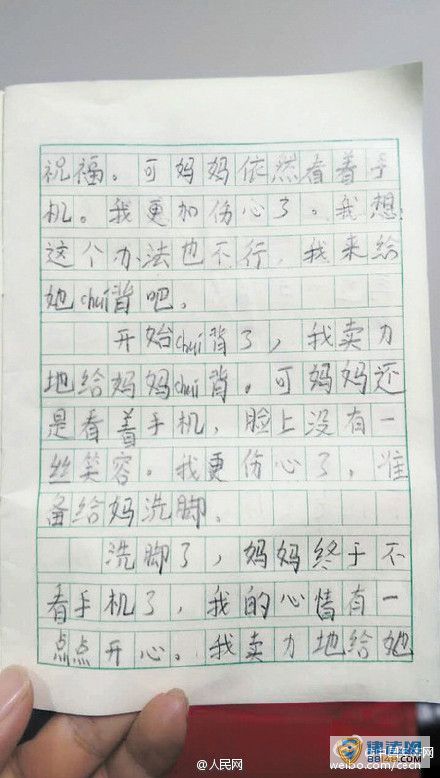 祝福。可妈妈依然看着手
机。我更加伤心了。我想:
这个办法也不行，我来给
她chuí背吧。
开始chuí背了，我卖力
地给妈妈chuí背。可妈妈还
是看着手机，脸上没有一
丝笑容。我更伤心了，准
备给妈洗脚。
洗脚了，妈妈终于不
看手机了，我的心情有一
点点开心。我卖力地给她
@人民网
weibo.com/cecn